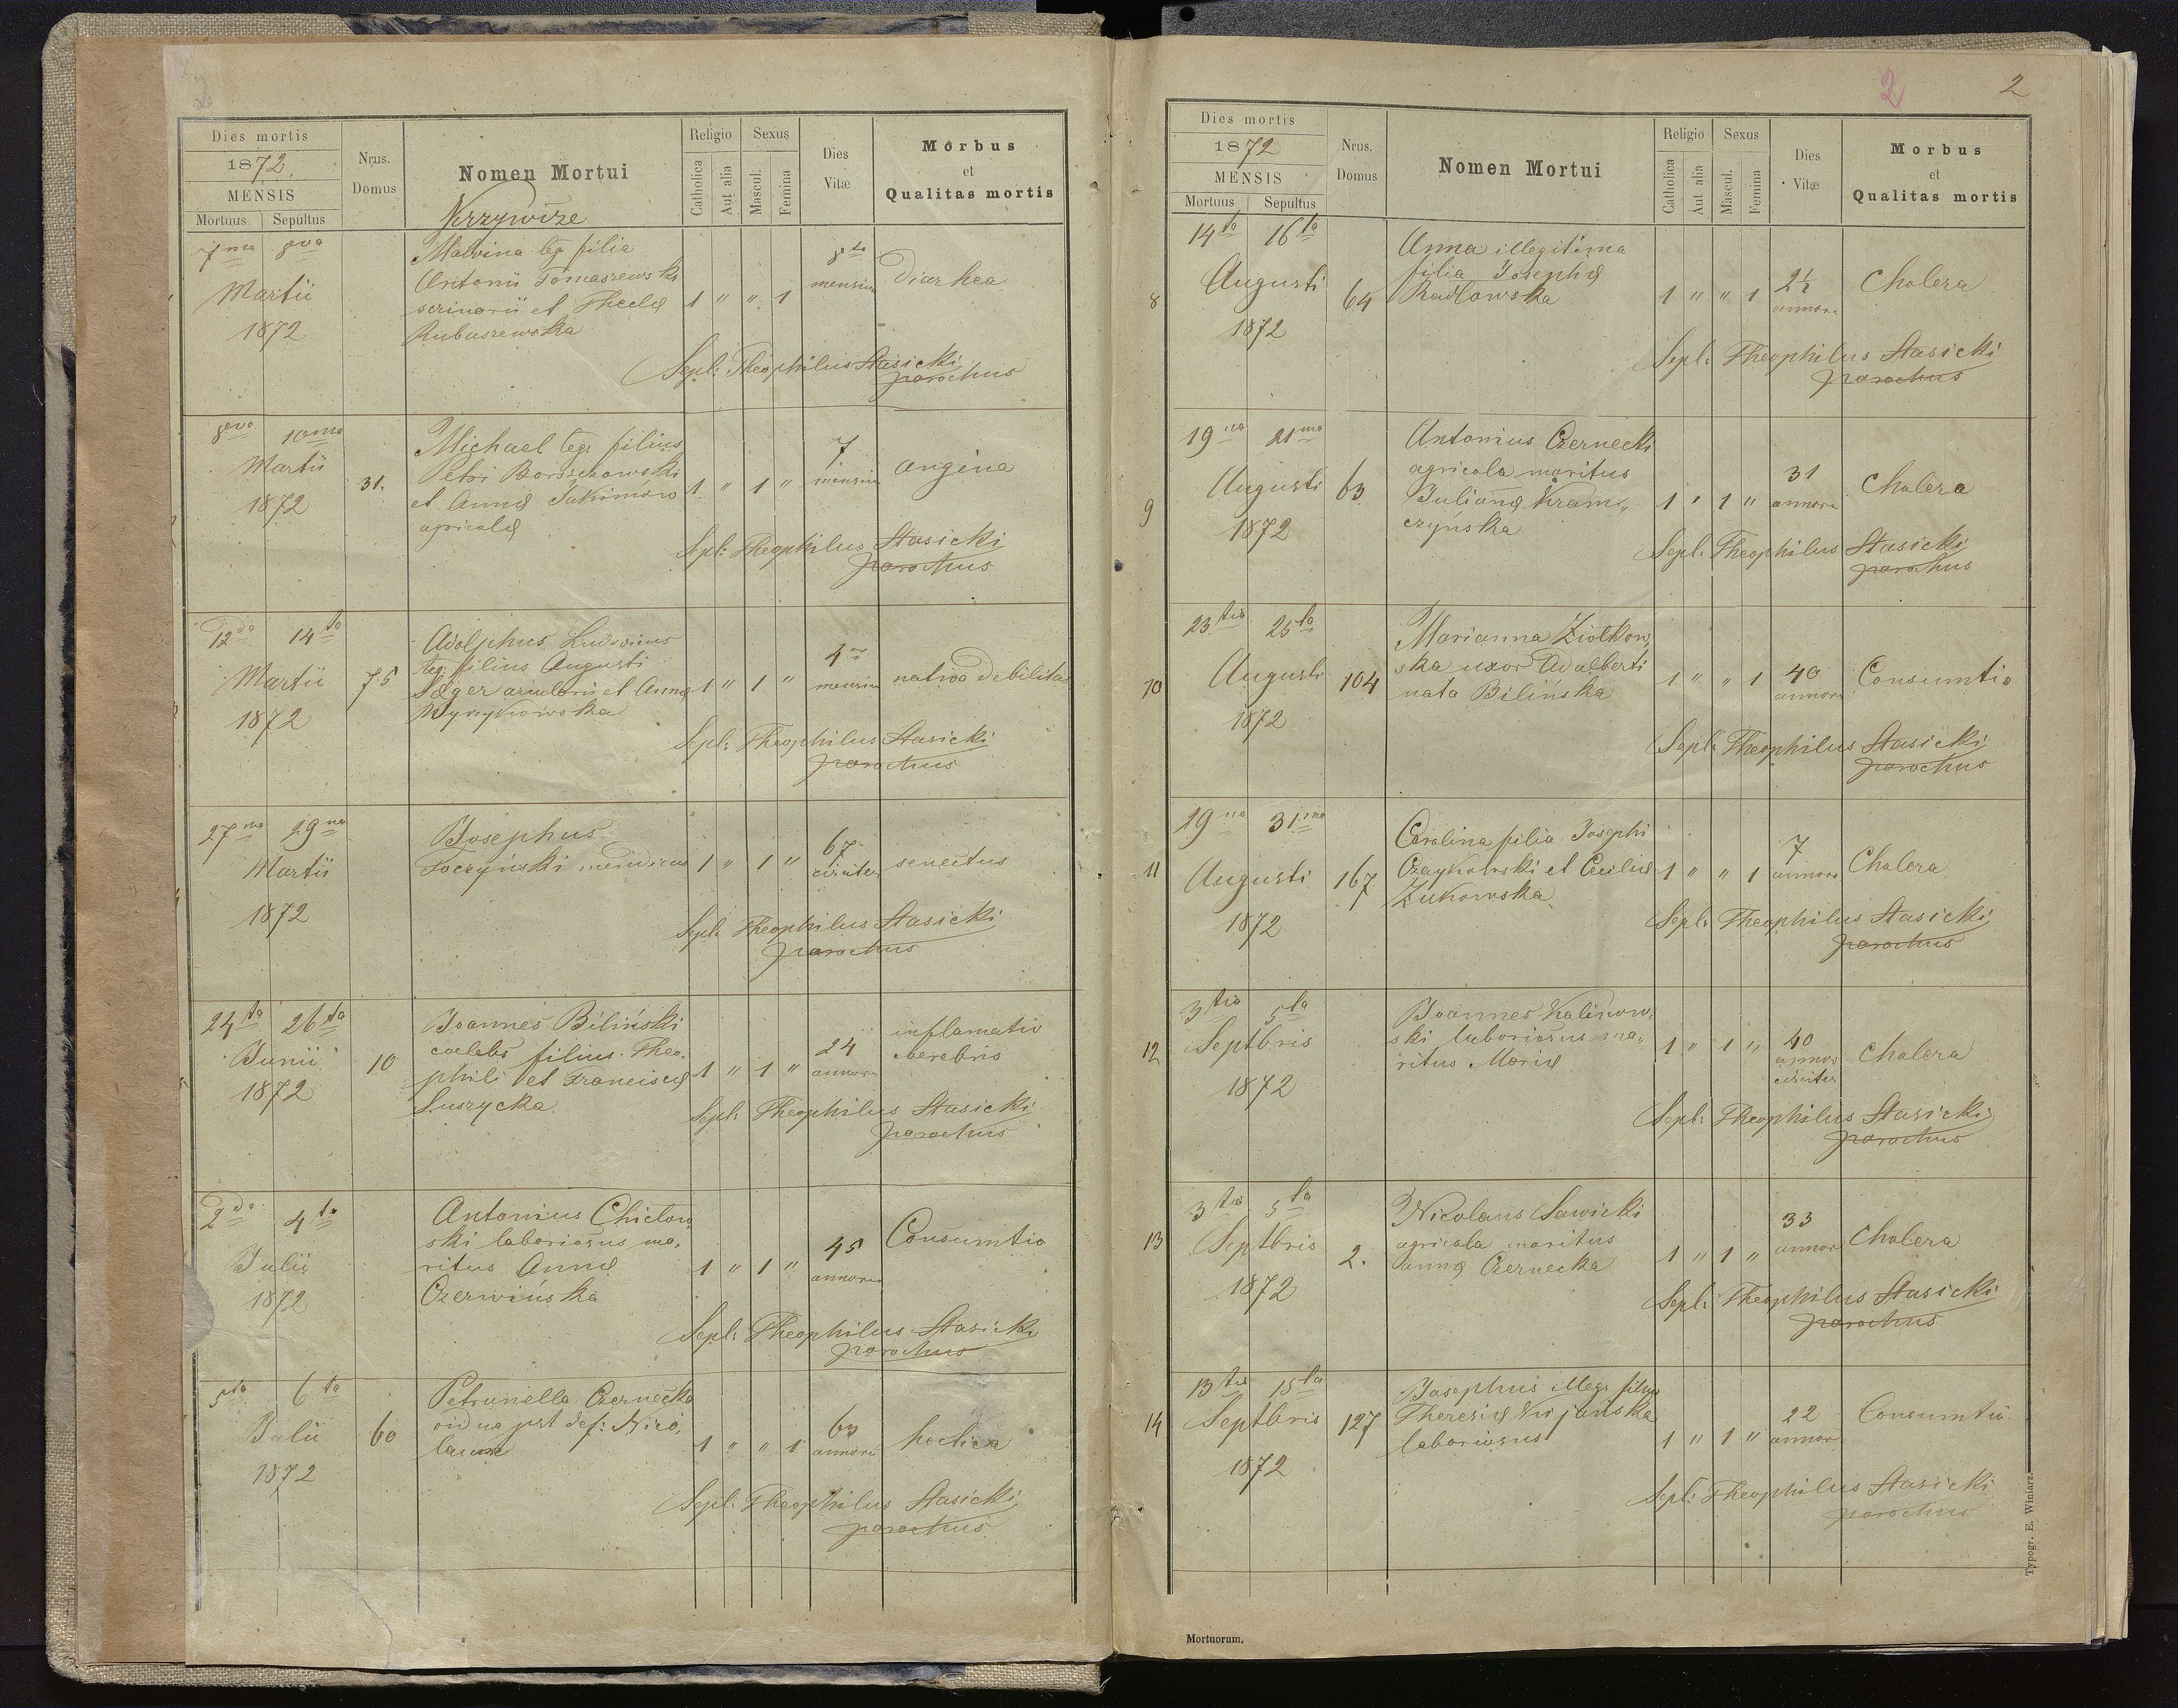 Dies mortis
1872.
MENSIS
Mortuus Sepultus
Nrus. Domus
Nomen Mortui
Krzywcze
Religio
Catholica
Aut alia
Sexus
Mascul.
Femina
Dies Vitæ
Morbus
et
Qualitas mortis
7ma 8va
Martii
1872
Malvina leg. filia
Antonii Tomaszewski
scrinarii et Theclæ
Rubaszewska
1 " " 1
8to
mensium
Diarhea
Sepl: Theophilus Stasicki
parochus
8va 10ma
Martii
1872
31.
Michael leg. filius
Petri Borszczowski
et Annæ Jakimów
agricolæ
1 " 1 "
7
mensium
angina
Sepl: Theophilus Stasicki
parochus
12da 14ta
Martii
1872
75
Adolphus Ludovicus
leg. filius Augusti
et Annæ
1 " 1 "
mensium
nativa debilitas
Sepl: Theophilus Stasicki
parochus
27ma 29na
Martii
1872
Josephus
Toczyński mendicus
1 " 1 "
67
circiter
senectus
Sepl. Theophilus Stasicki
parochus
24ta 26ta
Junii
1872
10
Joannes Biliński
coelebs filius Theo-
phili et Franciscæ
Suszycka
1 " 1 "
24
annorum
inflamatio
cerebris
Sepl: Theophilus Stasicki
parochus
2da 4ta
Julii
1872
Antonius Chictow
ski laboriosus ma,
ritus Annæ
Czerwińska
1 " 1 "
45
annorum
Consumtio
Sepl: Theophilus Stasicki
parochus
5ta 6ta
Julii
1872
60
Petrunella Czernecka
vidua post def: Nico,
laum
1 " " 1
annorum
hectica
Sepl: Theophilus Stasicki
parochus
2 2
Dies mortis
1872
MENSIS
Mortuus Sepultus
Nrus. Domus
Nomen Mortui
Religio
Catholica
Aut alia
Sexus
Mascul.
Femina
Dies Vitæ
Morbus
et
Qualitas mortis
8
14ta 16ta
Augusti
1872
64
Anna illegitima
filia Josephæ
Radlowska
1 " " 1
2½
annorum
Cholera
Sepl: Theophilus Stasicki
parochus
9
19na 21ma
Augusti
1872
63
Antonius Czernecki
agricola maritus
Julianæ Kram,,
czyńska
1 " 1 "
31
annorum
Cholera
Sepl: Theophilus Stasicki
parochus
10
23tia 25ta
Augusti
1872
104
Marianna Ziółkow,
ska uxor Adalberti
nata Bilińska
1 " " 1
40
annorum
Consumtio
Sepl: Theophilus Stasicki
parochus
11
29na 31ma
Augusti
1872
167
Carolina filia Josephi
Czaykowski et Ceciliæ
Żukowska
1 " " 1
7
annorum
Cholera
Sepl: Theophilus Stasicki
parochus
12
3tia 5ta
Septbris
1872
Joannes Kalinow,
ski laboriosus ma,,
ritus Mariæ
1 " 1 "
40
annor
circiter
Cholera
Sepl: Theophilus Stasicki
parochus
13
3tia 5ta
Septbris
1872
2.
Nicolaus Sawicki
agricola maritus
Annæ Czernecka
1 " 1 "
33
annor
Cholera
Sepl: Theophilus Stasicki
parochus
14
13tia 15ta
Septbris
1872
127
Josephus illeg. filius
Theresiæ Kijańska
laboriosus
1 " 1 "
22
annor
Consumtio
Sepl: Theophilus Stasicki
parochus
Typogr. E. Winiarz.
Mortuorum.